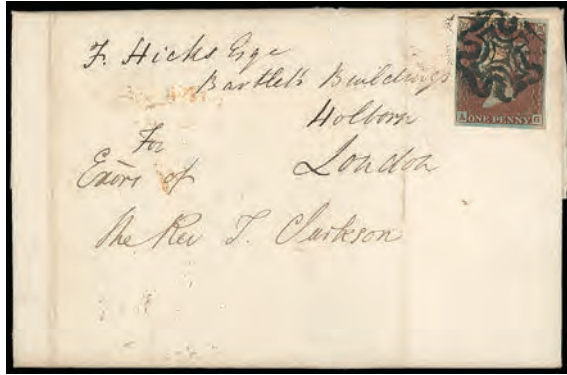 F. Hicks Esqe
Bartletts Buildings
Holborn
London
For
Exōrs of
the Rev T. Clarkson
A ONE PENNY G